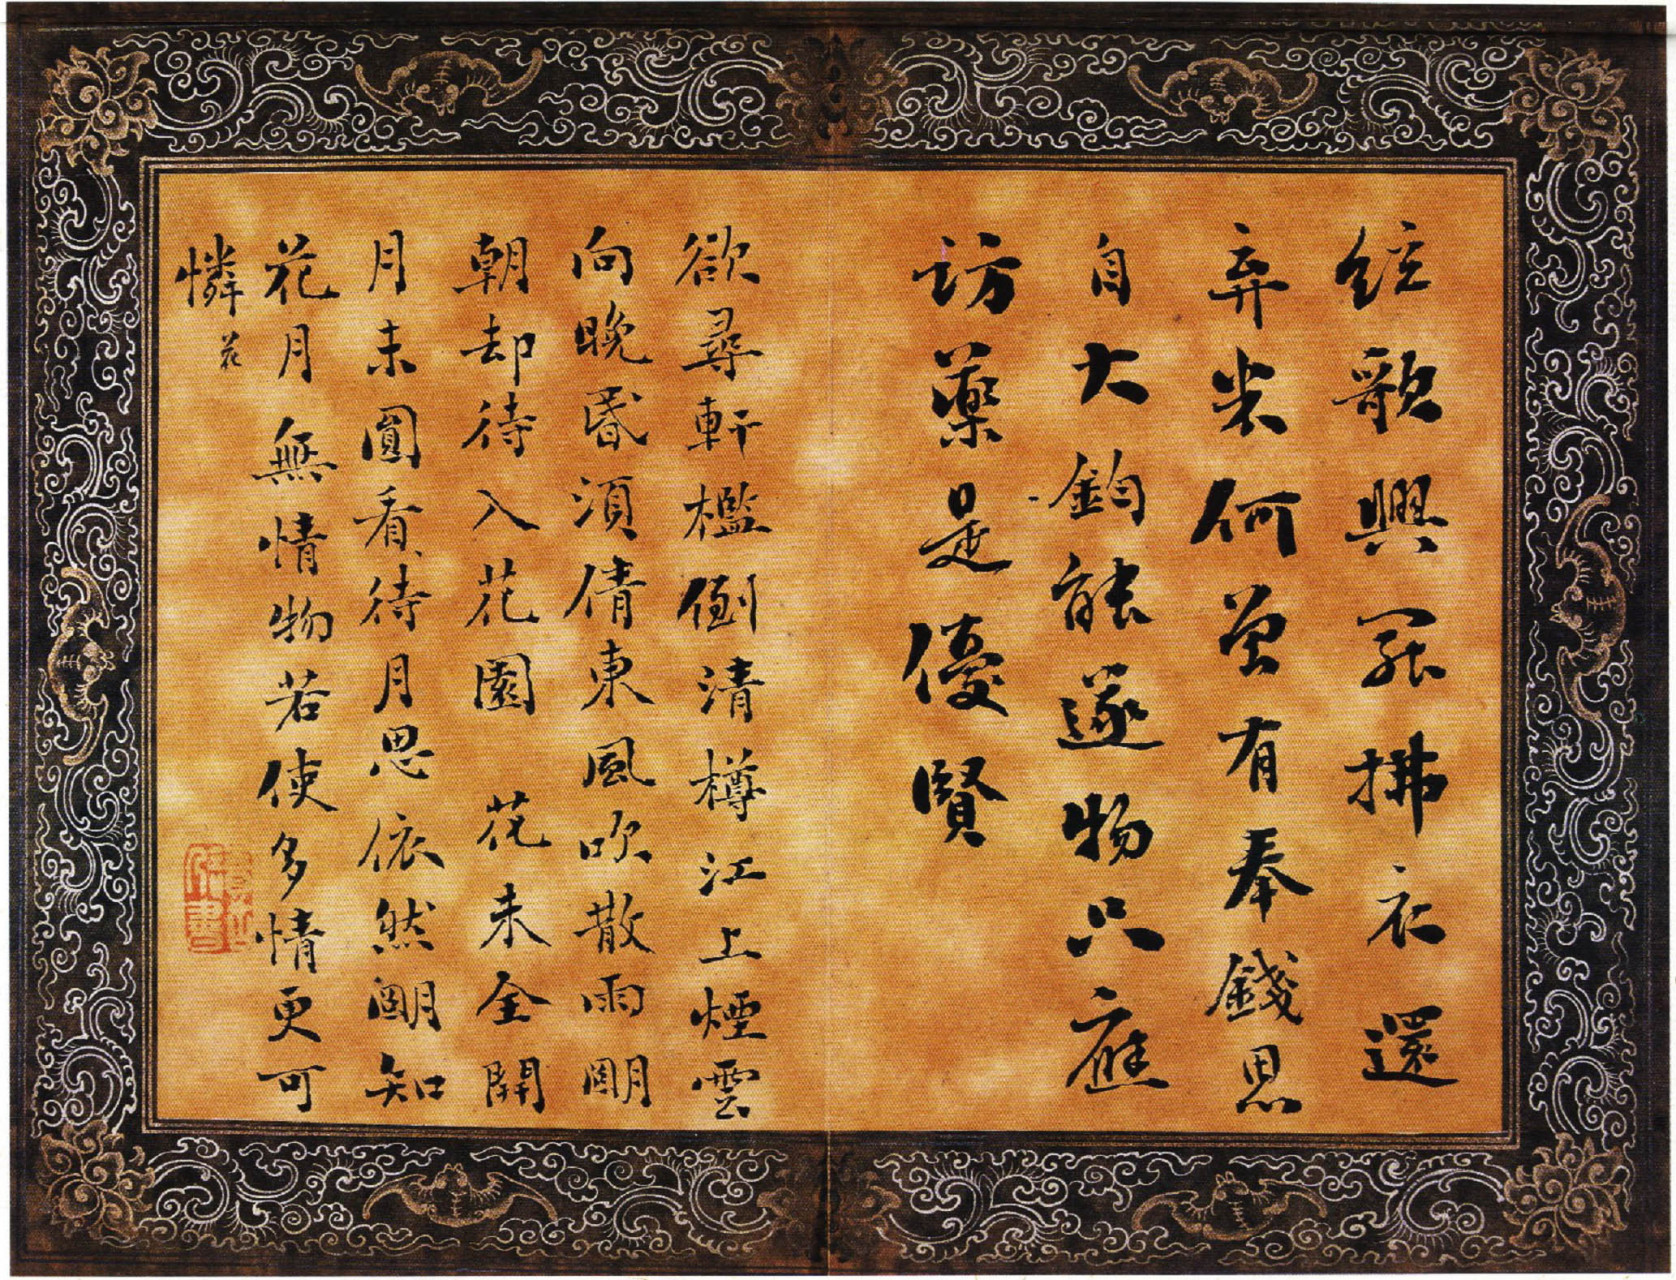 絃歌興罷拂衣還
弃米何曾有奉錢思
自大鈞能遂物只應
訪藥是優賢
欲尋軒檻倒清樽江上煙雲
向晚昬須倩東風吹散雨朙
朝却待入花園 花未全開
月未圓看待月思依然朙知
花月無情物若使多情更可
憐 花